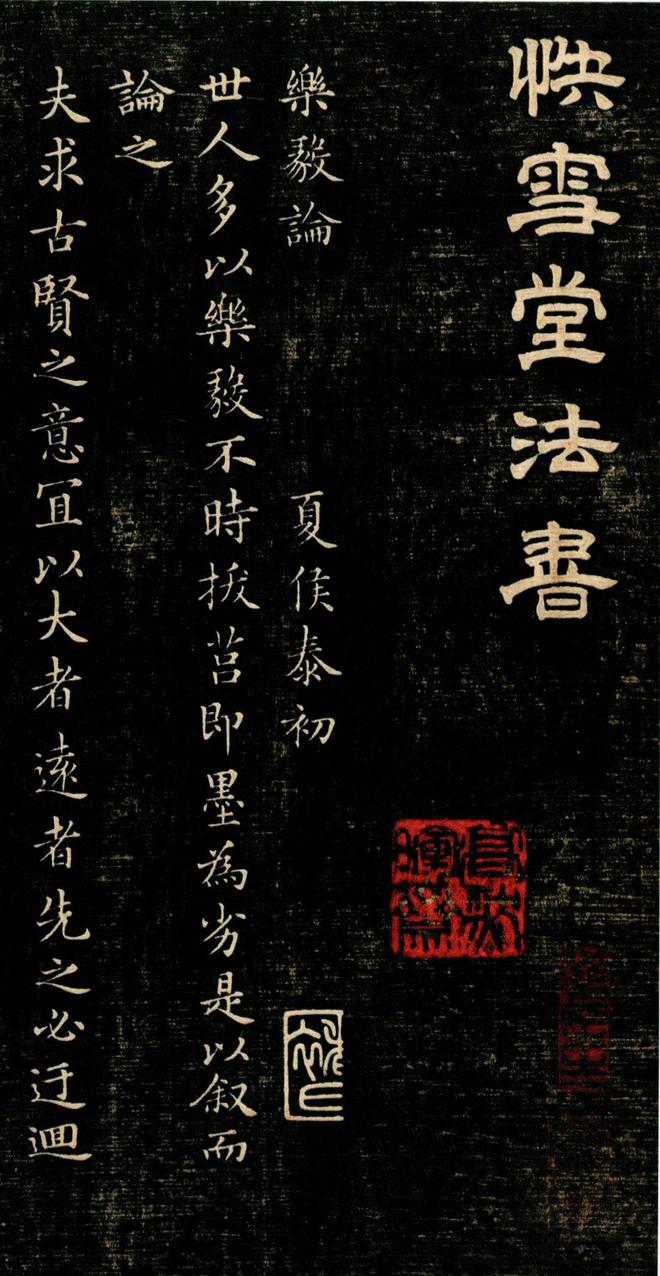 快雪堂法書
樂毅論 夏侯泰初
世人多以樂毅不時拔莒即墨為劣是以叙而
論之
夫求古賢之意宜以大者遠者先之必迂迴